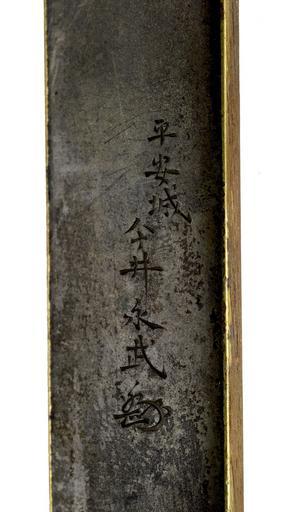 平安城
今井永武